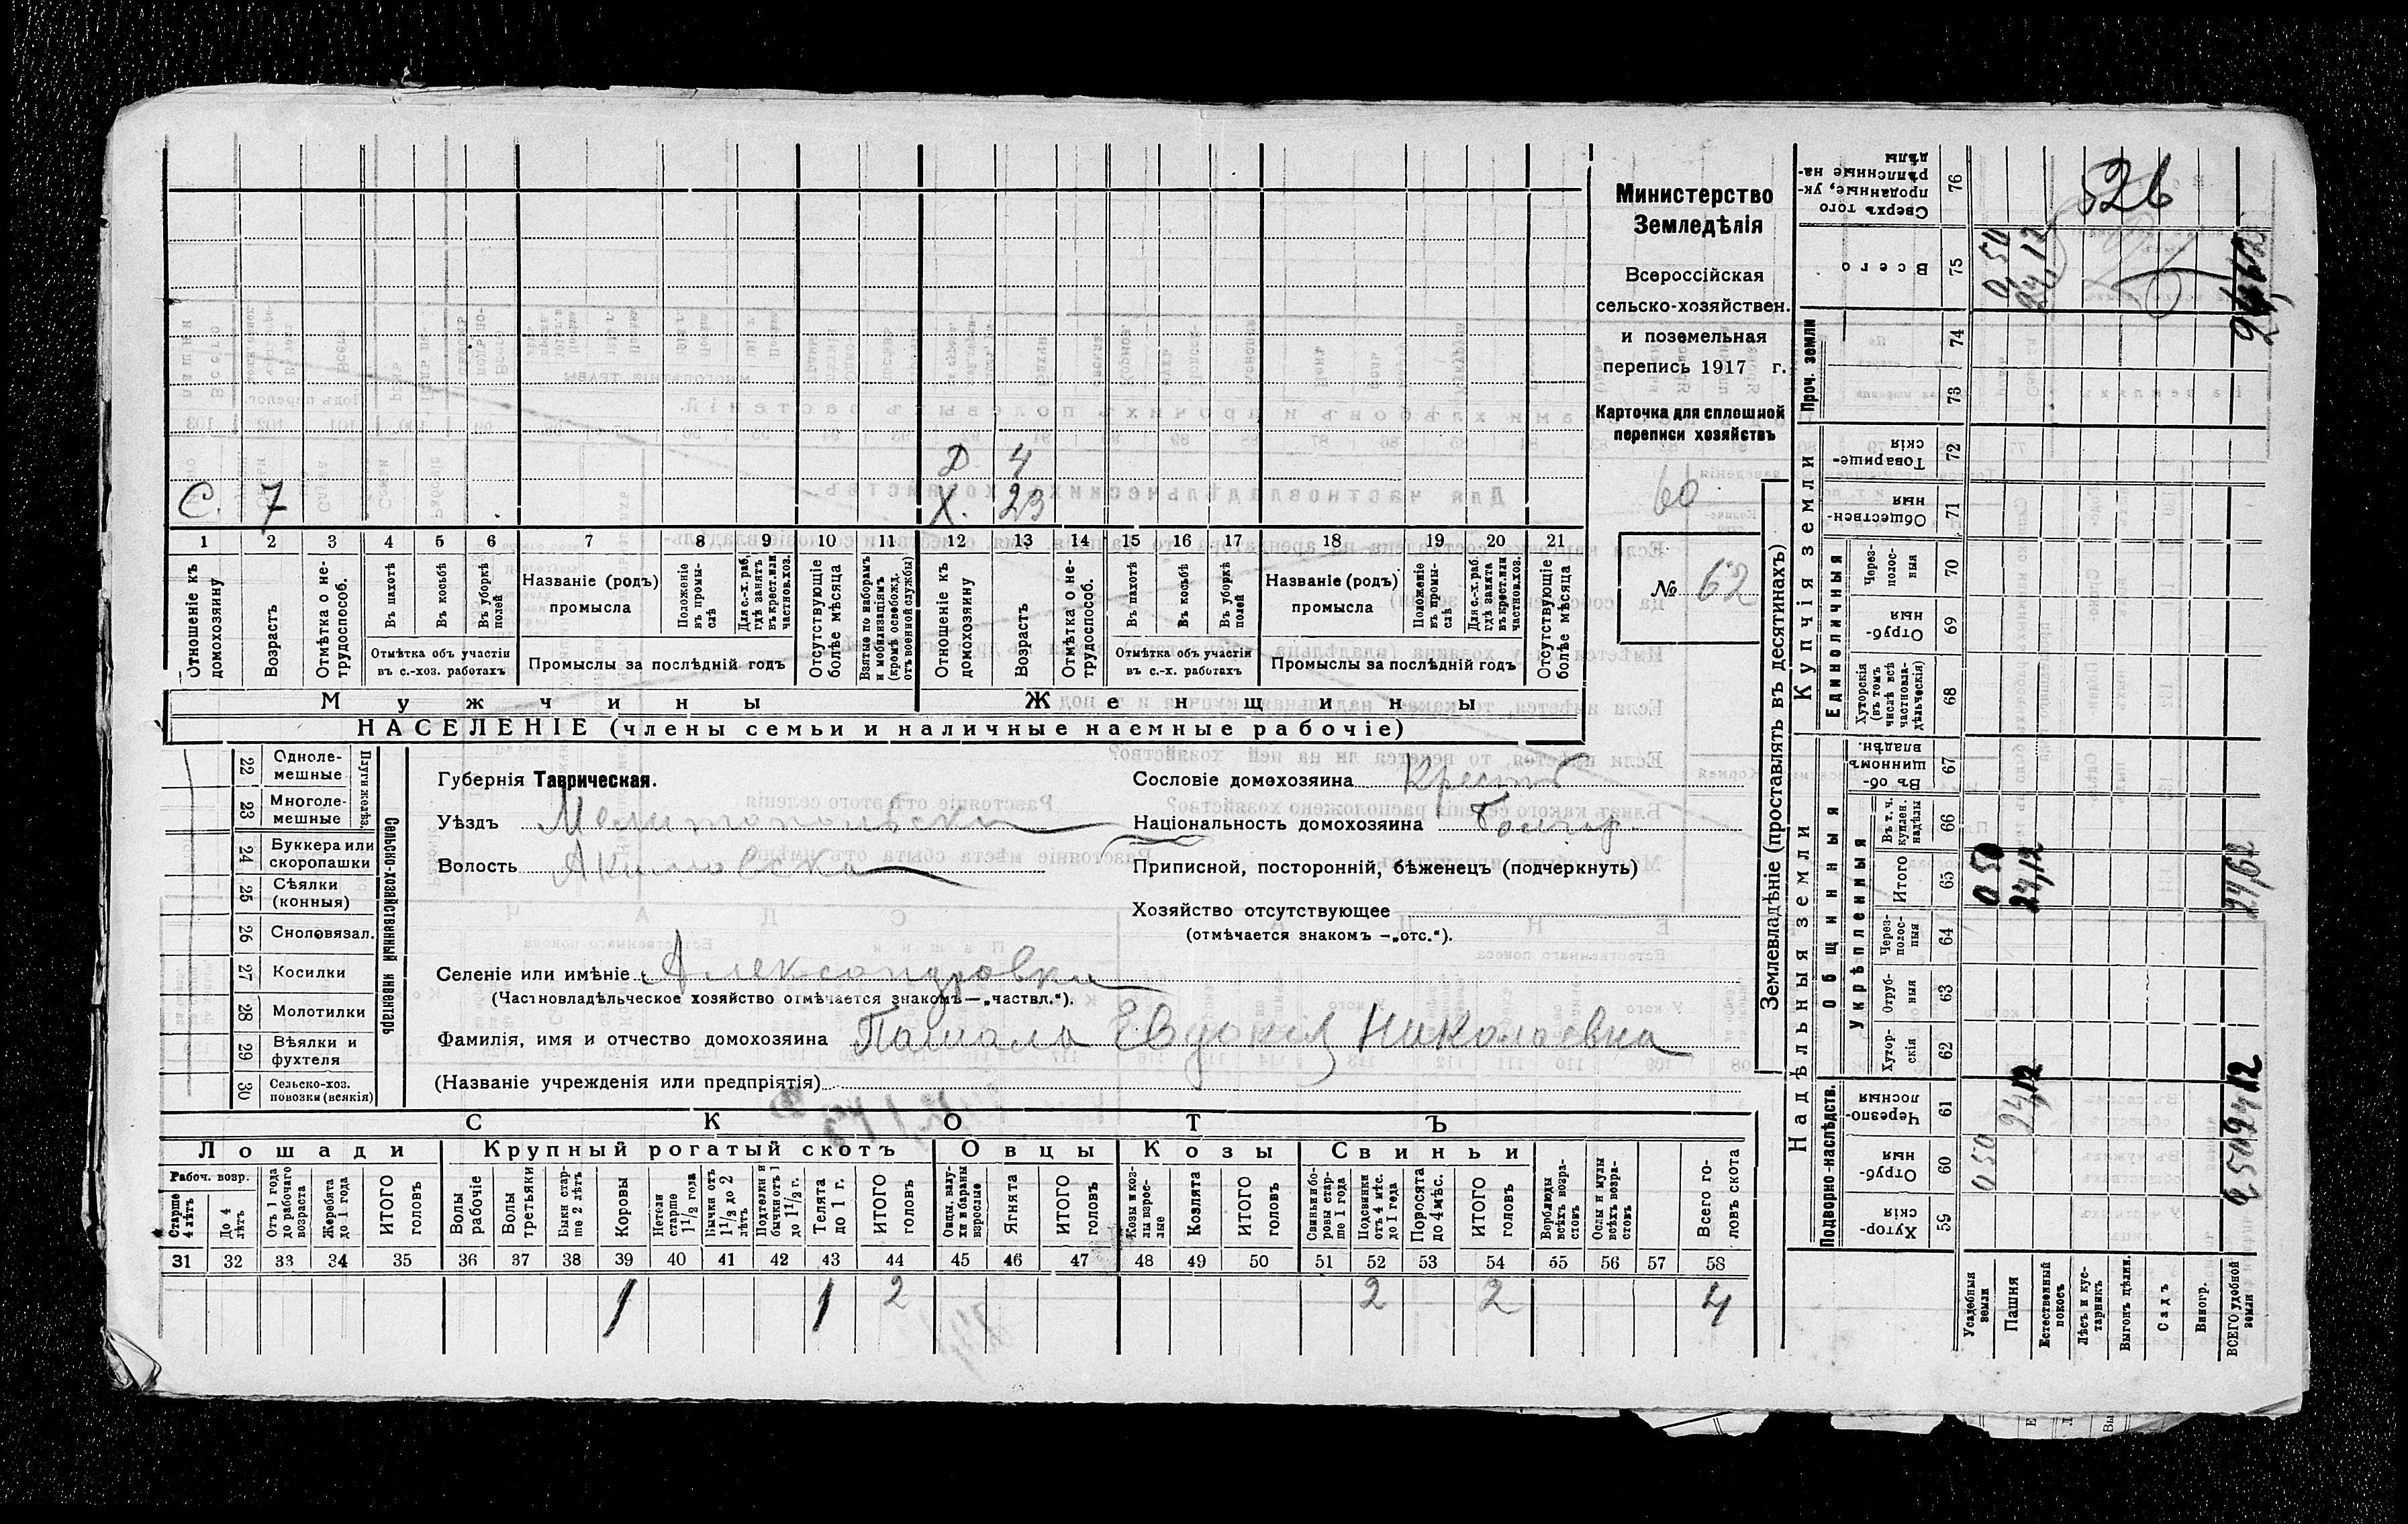 Министерство
Земледѣлія
Всероссійская
сельско-хозяйствен.
и поземельная
перепись 1917 г.
Карточка для сплошной
переписи хозяйствъ
60
№ 62
Д. 4
С. 7 Х. 23
1 2 3 4 5 6 7 8 9 10 11 12 13 14 15 16 17 18 19 20 21
Отношеніе къ домохозяину
Возрастъ
Отмѣтка о не-трудоспособ.
Въ пахотѣ
Въ косьбѣ
Въ уборкѣ полей
Отмѣтка объ участіи
въ с.-хоз. работахъ
Названіе (родъ)
промысла
Положеніе въ промы-слѣ
Для с.-х. раб, гдѣ занятъ въ крест. или частнов. хоз.
Промыслы за послѣдній годъ
Отсутствующіе болѣе мѣсяца
Взятые по наборамъ и мобилизаціямъ (кромѣ освобожд. отъ военной службы)
Отношеніе къ домохозяину
Возрастъ
Отмѣтка о не-трудоспособ.
Въ пахотѣ
Въ косьбѣ
Въ уборкѣ полей
Отмѣтка объ участіи
въ с.-х. работахъ
Названіе (родъ)
промысла
Положеніе въ промы-слѣ
Для с.-х. раб. гдѣ занята въ крест. или частнов. хоз.
Промыслы за послѣдній годъ
Отсутствующіе болѣе мѣсяца
Мужчины Женщины
НАСЕЛЕНІЕ (члены семьи и наличные наемные рабочіе)
22 Однолемешные
23 Многолемешные
Плуги желѣз.
24 Буккера или скоропашки
25 Сѣялки (конныя)
26 Сноповязал.
27 Косилки
28 Молотилки
29 Вѣялки и фухтеля
30 Сельско-хоз. повозки (всякія)
Сельско-хозяйственный инвентарь
Губернія Таврическая.
Уѣздъ Мелитопольски
Волость Акимовска
Сословіе домохозяина Крестъ
Національность домохозяина Болгар.
Приписной, посторонній, бѣженецъ (подчеркнуть)
Хозяйство отсутствующее
(отмѣчается знакомъ —„отс.“).
Селеніе или имѣніе Александровка
(Частновладѣльческое хозяйство отмѣчается знакомъ—„частвл.“).
Фамилія, имя и отчество домохозяина Пашала Евдокія Николаевна
(Названіе учрежденія или предпріятія)
СКОТЪ
Лошади Крупный рогатый скотъ Овцы Козы Свиньи
Рабоч. возр.
Старше 4 лѣтъ
До 4 лѣтъ
Отъ 1 года до рабочаго возраста
Жеребята до 1 года
ИТОГО головъ
Волы рабочіе
Волы третьяки
Быки стар-ше 2 лѣтъ
Коровы
Нетели старше 1½ года
Бычки отъ 1½ до 2 лѣтъ
Подтелки и бычки отъ 1 до 1½ г.
Телята до 1 г.
ИТОГО головъ
Овцы, валу-хи и бараны взрослые
Ягнята
ИТОГО головъ
Козы и коз-лы взрос-лые
Козлята
ИТОГО головъ
Свиньи и бо-ровы стар-ше 1 года
Подсвинки отъ 4 мѣс. до 1 года
Поросята до 4 мѣс.
ИТОГО головъ
Верблюды всѣхъ возра-стовъ
Ослы и мулы всѣхъ возра-стовъ
Всего го-ловъ скота
31 32 33 34 35 36 37 38 39 40 41 42 43 44 45 46 47 48 49 50 51 52 53 54 55 56 57 58
1 1 2 2 2 4
Землевладѣніе (проставлять въ десятинахъ)
Надѣльныя земли
Купчія земли
Проч. земли
Подворно-наслѣдств.
Общинныя
Укрѣпленныя
Единоличныя
59 Хутор-скія
60 Отруб-ныя
61 Черезпо-лосныя
62 Хутор-скія
63 Отруб-ныя
64 Через-полос-ныя
65 Итого
66 Въ т. ч. куплен. надѣлы
67 Въ об-щинномъ владѣн.
68 Хуторскія (въ томъ числѣ всѣ частновла-дѣльческія)
69 Отруб-ныя
70 Через-полос-ныя
71 Обществен-ныя
72 Товарище-скія
73
74
75 Всего
76 Сверхъ того проданные, ук-рѣпленные на-дѣлы
Усадебныя земли 0 50 0 50 0,50
Пашня 24,12 24,12 24,12
Естественный покосъ
Лѣсъ и кус-тарникъ
Выгонъ цѣлин.
Садъ
Виногр.
ВСЕГО удобной земли 24,62
526